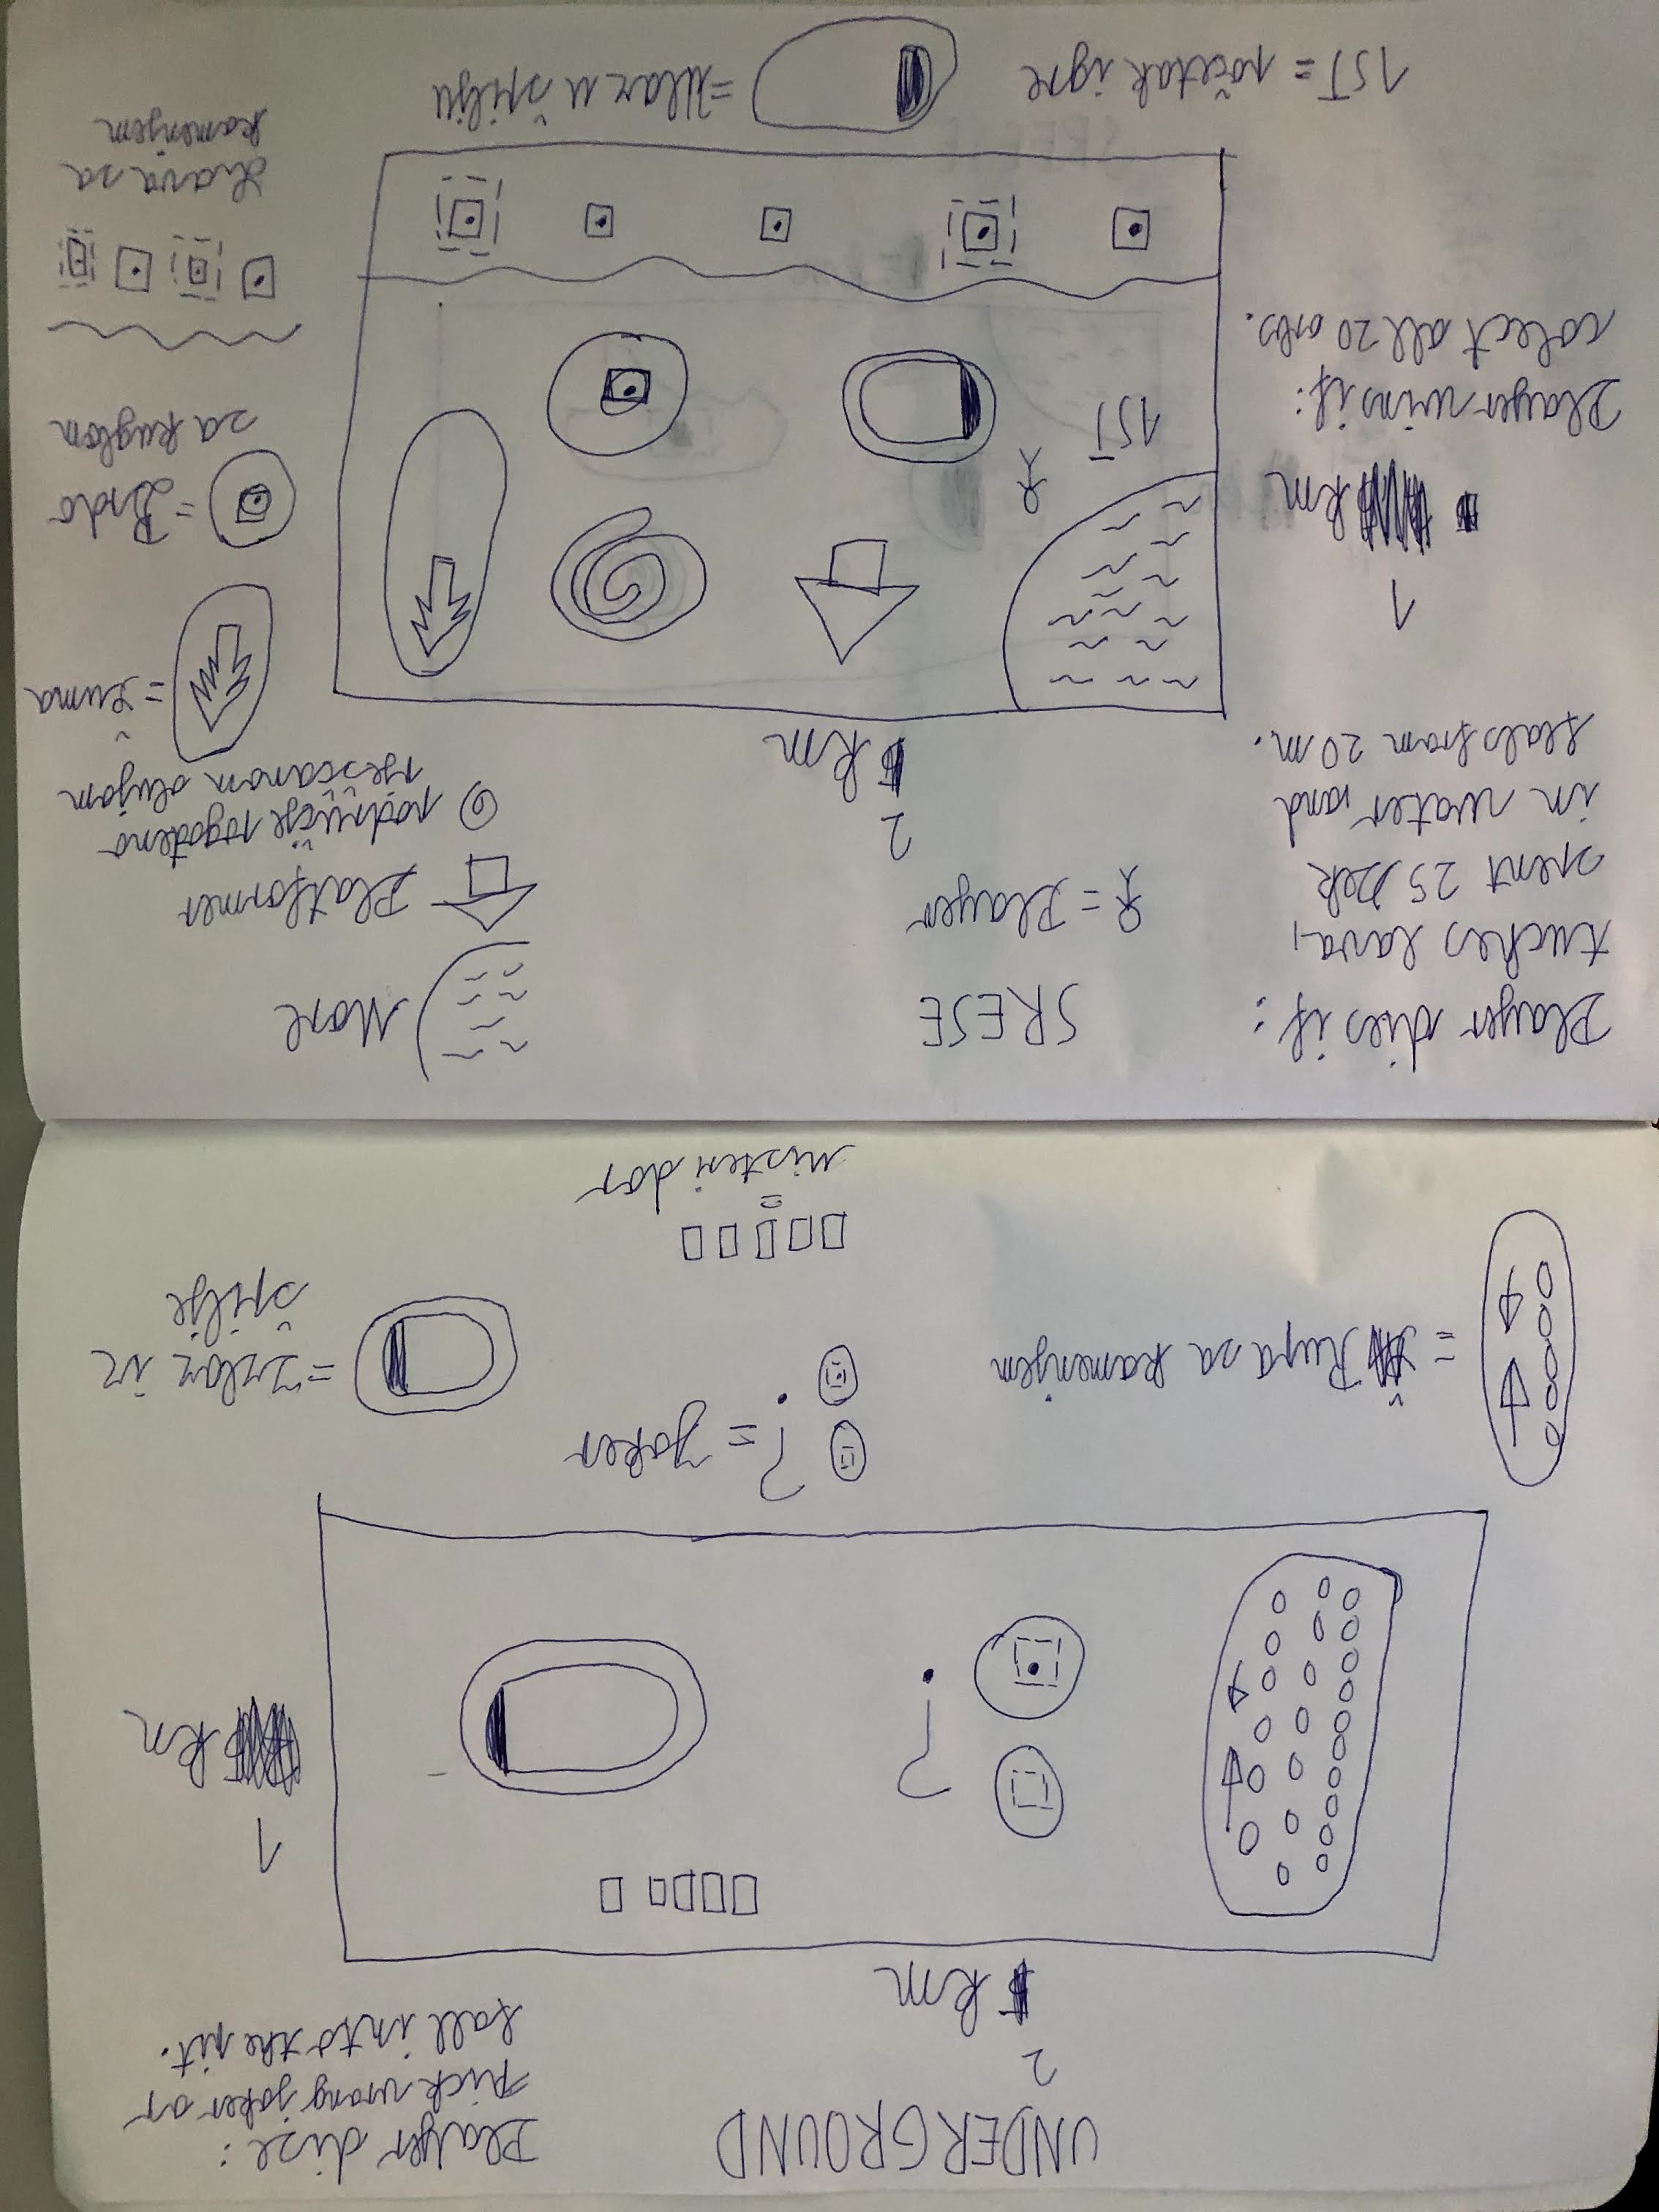 UNDERGROUND
Player dise:
Pick vrong joker or
fall into the pit.
2
km
1
km
= Rupa sa kamenjem
? = Joker
= Izlaz iz
špilje
=
misteri dor
Player dies if:
tuches lava,
spent 25 sek
in water, and
feals from 20 m.
SRESE
= Player
More
Platformer
područje pogođeno
pješčanom olujom
2
km
= šuma
1
km
1ST
= Brdo
sa kuglom
Player wins if:
colect all 20 orbs.
Lava sa
kamenjem
1ST = početak igre
= Ulaz u špilju